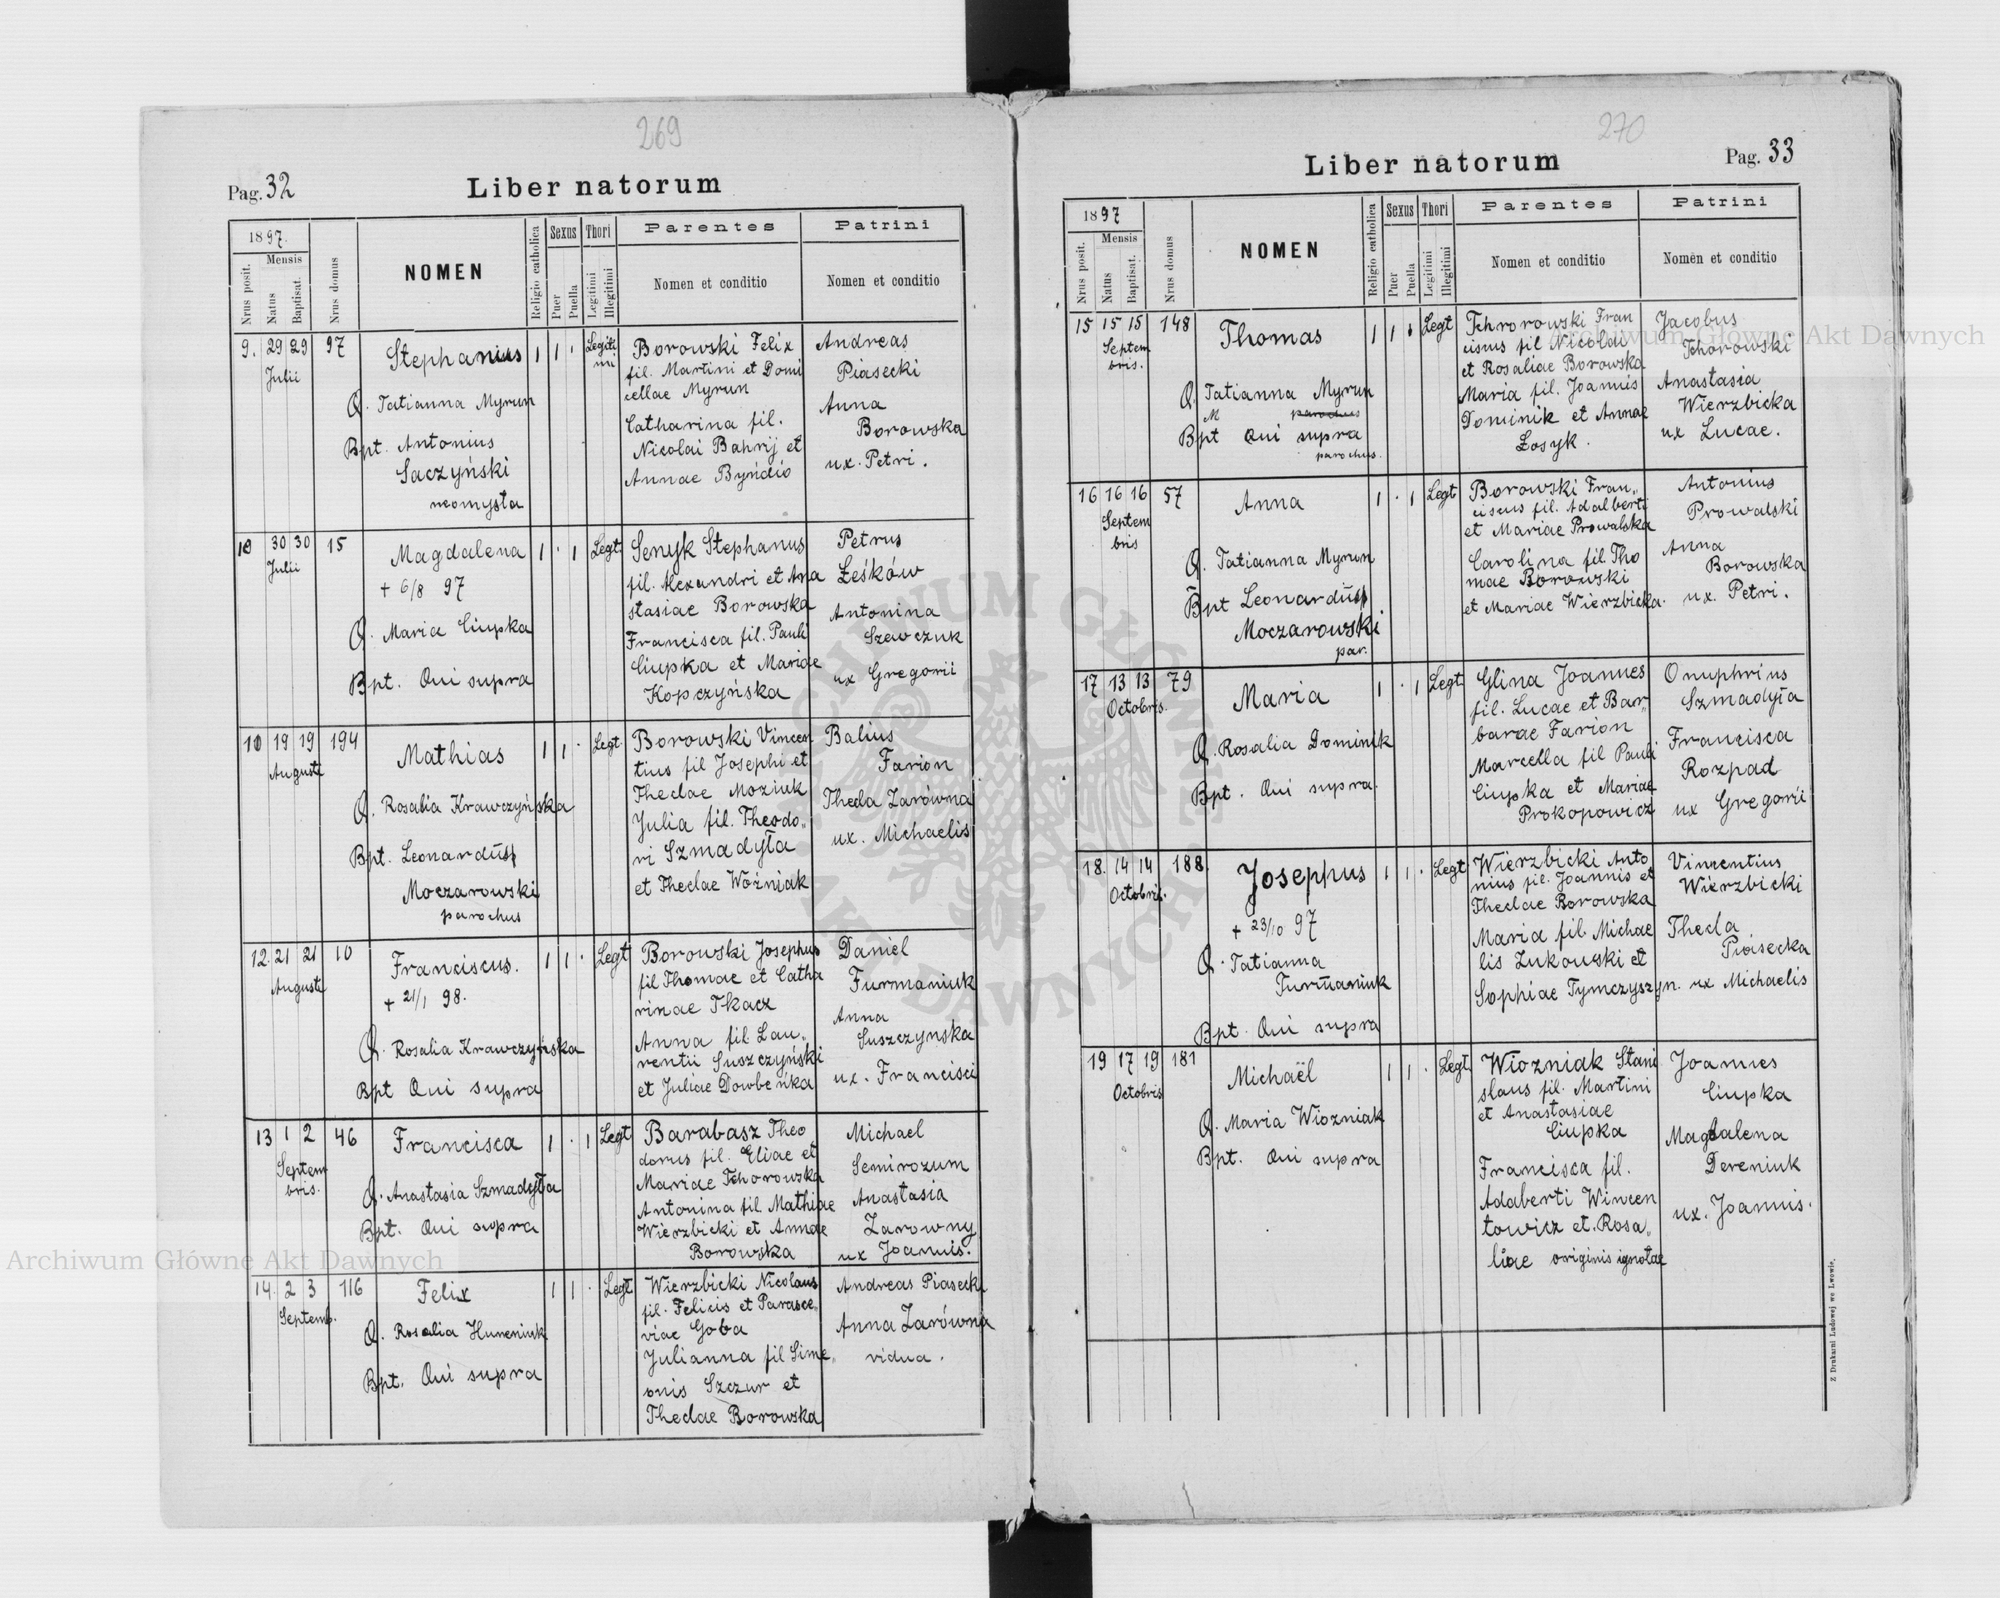 269
Pag. 32
Liber natorum
1897.
Nrus posit.
Mensis
Natus
Baptisat.
Nrus domus
NOMEN
Religio catholica
Sexus
Puer
Puella
Thori
Legitimi
Illegitimi
Parentes
Nomen et conditio
Patrini
Nomen et conditio
9. 29 29 97
Julii
Stephanus
O. Tatianna Myrun
Bpt. Antonius
Saczyński
neomysta
1 1 ·
Legiti
mi
Borowski Felix
fil. Martini et Domi
cellae Myrun
Catharina fil.
Nicolai Bahrij et
Annae Byńdió
Andreas
Piasecki
Anna
Borowska
ux. Petri.
10 30 30 15
Julii
Magdalena
+ 6/8 97
O. Maria Ciupka
Bpt. Qui supra
1 · 1
Legt
Senyk Stephanus
fil. Alexandri et Ana
stasiae Borowska
Francisca fil. Pauli
Ciupka et Mariae
Kopczyńska
Petrus
Leśków
Antonina
Szewczuk
ux Gregorii
10 19 19 194
Augusti
Mathias
O. Rosalia Krawczyńska
Bpt. Leonardus
Moczarowski
parochus
1 1 ·
Legt.
Borowski Vincen
tius fil Josephi et
Theclae Moziuk
Julia fil. Theodo„
ri Szmadyła
et Theclae Woźniak
Balius
Farion
Thecla Zarówna
ux. Michaelis
12. 21 21 10
Augusti
Franciscus.
+ 21/1 98.
O. Rosalia Krawczyńska
Bpt Qui supra
1 1 ·
Legt
Borowski Josephus
fil Thomae et Catha
rinae Tkacz
Anna fil Lau„
rentii Suszczyński
et Juliae Dowbeńka
Daniel
Furmaniuk
Anna
Suszczynska
ux. Francisci
13 1 2 46
Septem
bris.
Francisca
O. Anastasia Szmadyła
Bpt. Qui supra
1 · 1
Legt
Barabasz Theo
dorus fil. Eliae et
Mariae Tchorowska
Antonina fil. Mathiae
Wierzbicki et Annae
Borowska
Michael
Semirozum
Anastasia
Zarowny
ux Joannis.
14. 2 3 116
Septemb.
Felix
O. Rosalia Humeniuk
Bpt. Qui supra
1 1 ·
Legt
Wierzbicki Nicolaus
fil. Felicis et Parasce„
viae Goba
Julianna fil Sime„
onis Szczur et
Theclae Borowska
Andreas Piasecki
Anna Zarówna
vidua.
270
Liber natorum
Pag. 33
1897
Nrus posit.
Mensis
Natus
Baptisat.
Nrus domus
NOMEN
Religio catholica
Sexus
Puer
Puella
Thori
Legitimi
Illegitimi
Parentes
Nomen et conditio
Patrini
Nomen et conditio
15 15 15 148
Septem
bris.
Thomas
O. Tatianna Myrun
M parochus
Bpt Qui supra
parochus.
1 1 ·
Legt
Tchrorowski Fran
ciscus fil Nicolai
et Rosaliae Borowska
Maria fil. Joannis
Dominik et Annae
Łosyk.
Jacobus
Tchorowski
Anastasia
Wierzbicka
ux Lucae.
16 16 16 57
Septem
bris
Anna
O. Tatianna Myrun
Bpt Leonardus
Moczarowski
par.
1 · 1
Legt
Borowski Fran„
ciscus fil. Adalberti
et Mariae Prowalska
Carolina fil. Tho
mae Borowski
et Mariae Wierzbicka.
Antonius
Prowalski
Anna
Borowska
ux. Petri.
17 13 13 79
Octobris.
Maria
O. Rosalia Dominik
Bpt. Qui supra.
1 · 1
Legt.
Glina Joannes
fil. Lucae et Bar„
barae Farion
Marcella fil Pauli
Ciupka et Mariae
Prokopowicz
Onuphrius
Szmadyła
Francisca
Rozpad
ux Gregorii
18. 14 14 188.
Octobris.
Josephus
+ 23/10 97
O. Tatianna
Furmaniuk
Bpt. Qui supra
1 1 ·
Legt
Wierzbicki Anto
nius fil. Joannis et
Theclae Borowska
Maria fil. Michae
lis Zukowski et
Sophiae Tymczyszyn.
Vincentius
Wierzbicki
Thecla
Piasecka
ux Michaelis
19 17 19 181
Octobris
Michaël
O. Maria Wiozniak
Bpt. Qui supra
1 1 ·
Legt
Wiozniak Stani
slaus fil. Martini
et Anastasiae
Ciupka
Francisca fil.
Adaberti Wincen
towicz et. Rosa„
liae originis ignotae
Joannes
Ciupka
Magdalena
Dereniuk
ux. Joannis.
Z Drukarni Ludowej we Lwowie.
Archiwum Główne Akt Dawnych
Archiwum Główne Akt Dawnych
ARCHIWUM GŁÓWNE AKT DAWNYCH